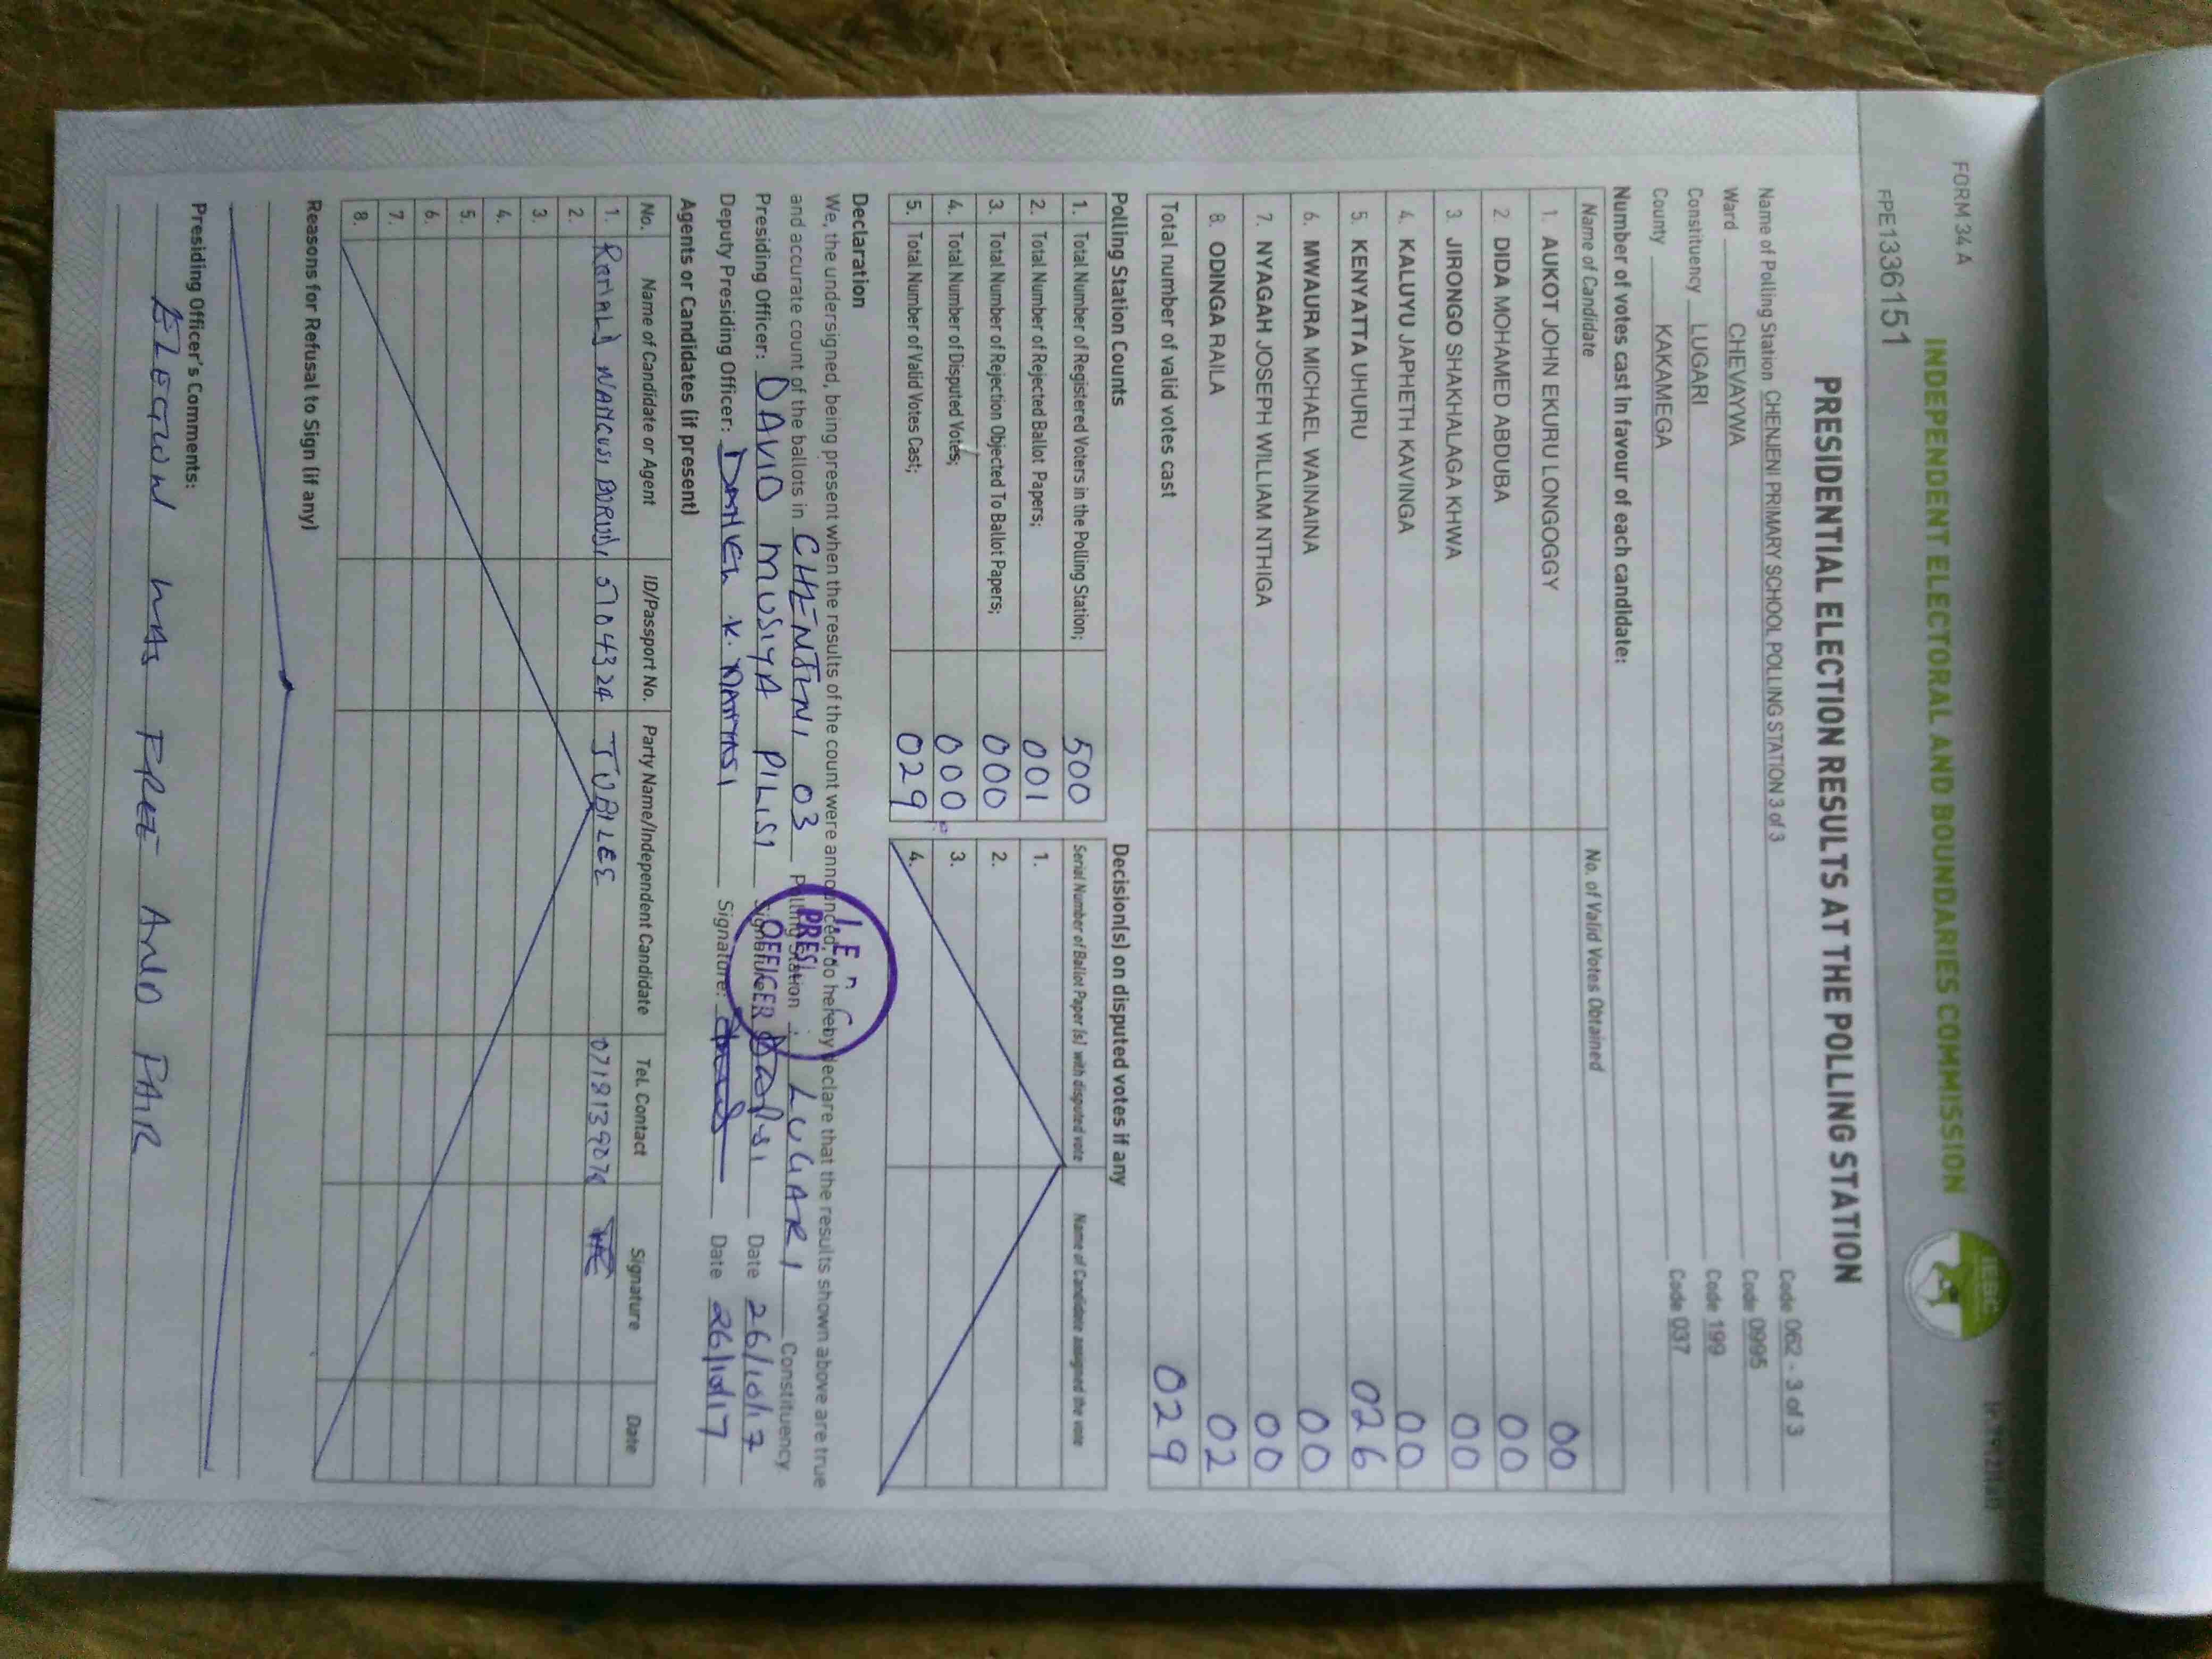 FORM 34 A
INDEPENDENT ELECTORAL AND BOUNDARIES COMMISSION
IEBC
PRESIDENTIAL ELECTION RESULTS AT THE POLLING STATION
Name of Polling Station CHENJENI PRIMARY SCHOOL POLLING STATION 3 of 3 Code 062 - 3 of 3
Ward CHEVAYWA Code 0995
Constituency LUGARI Code 199
County KAKAMEGA Code 037
Number of votes cast in favour of each candidate:
Name of Candidate No. of Valid Votes Obtained
1. AUKOT JOHN EKURU LONGOGGY 00
2. DIDA MOHAMED ABDUBA 00
3. JIRONGO SHAKHALAGA KHWA 00
4. KALUYU JAPHETH KAVINGA 00
5. KENYATTA UHURU 026
6. MWAURA MICHAEL WAINAINA 00
7. NYAGAH JOSEPH WILLIAM NTHIGA 00
8. ODINGA RAILA 02
Total number of valid votes cast 029
Polling Station Counts
1. Total Number of Registered Voters in the Polling Station; 500
2. Total Number of Rejected Ballot Papers; 001
3. Total Number of Rejection Objected To Ballot Papers; 000
4. Total Number of Disputed Votes; 000
5. Total Number of Valid Votes Cast; 029
Decision(s) on disputed votes if any
Serial Number of Ballot Paper (s) with disputed vote Name of Candidate assigned the vote
1.
2.
3.
4.
Declaration
We, the undersigned, being present when the results of the count were announced, do hereby declare that the results shown above are true
and accurate count of the ballots in CHENJENI 03 Polling Station ; LUGARI Constituency
Presiding Officer: DAVID MUSIYA PILISI Signature: Date 26/10/17
Deputy Presiding Officer: Signature: Date 26/10/17
OFFICER
Agents or Candidates (if present)
No. Name of Candidate or Agent ID/Passport No. Party Name/Independent Candidate Tel. Contact Signature Date
1. JUBILEE
2.
3.
4.
5.
6.
7.
8.
Reasons for Refusal to Sign (if any)
Presiding Officer's Comments:
ELECTION WAS FREE AND FAIR